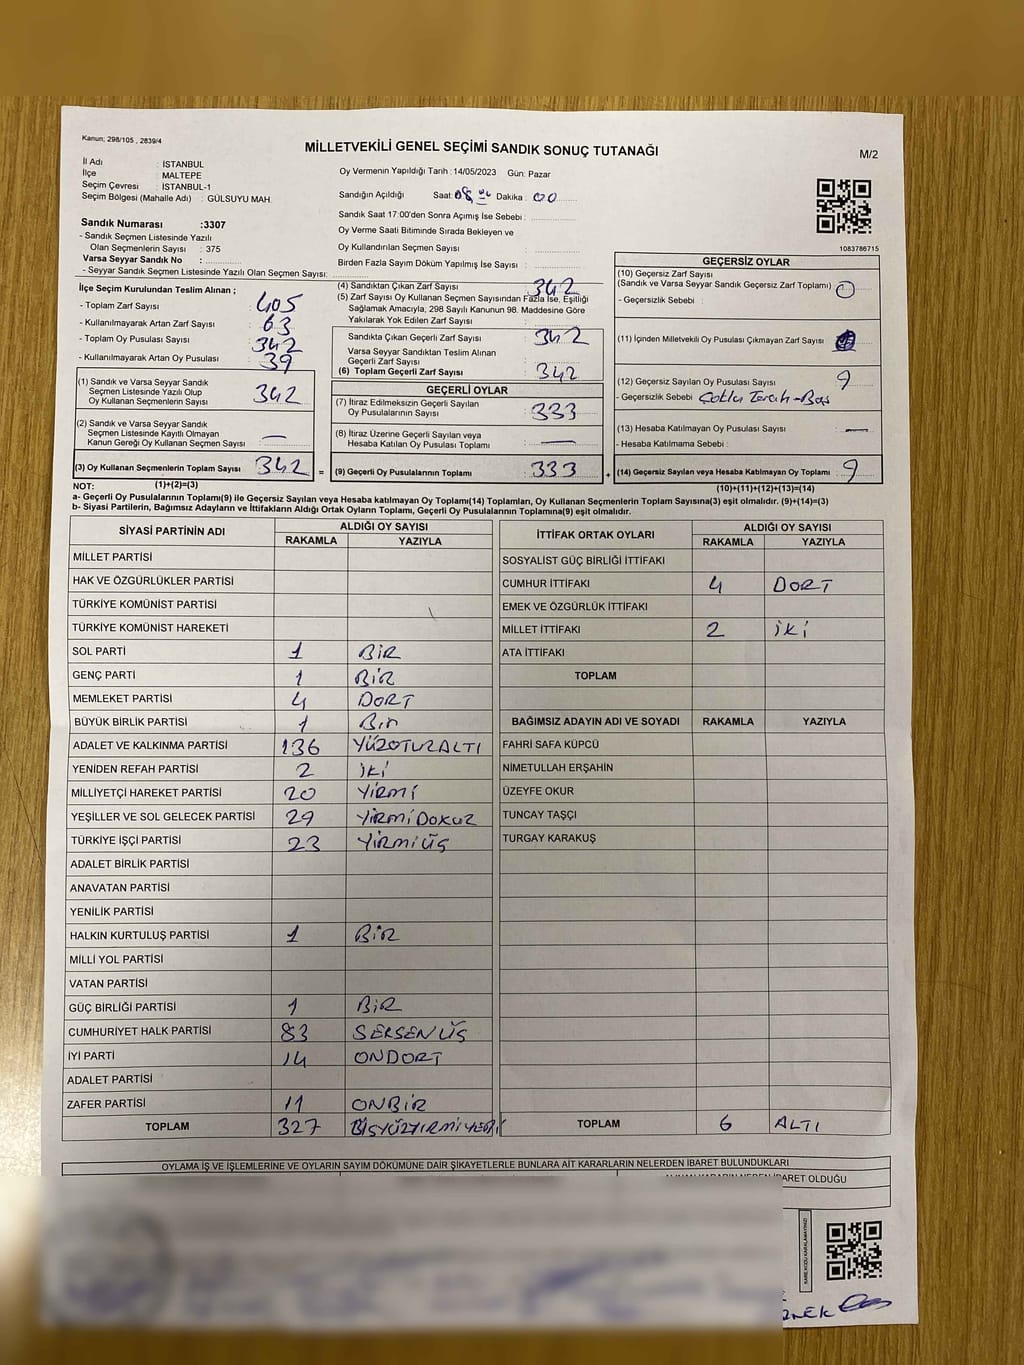 Kanun; 298/105 , 2839/4
MİLLETVEKİLİ GENEL SEÇİMİ SANDIK SONUÇ TUTANAĞI
M/2
İl Adı : İSTANBUL
İlçe : MALTEPE
Seçim Çevresi : İSTANBUL-1
Seçim Bölgesi (Mahalle Adı) : GÜLSUYU MAH.
Oy Vermenin Yapıldığı Tarih :14/05/2023 Gün: Pazar
Sandığın Açıldığı Saat: 08 Dakika : 00
Sandık Saat 17:00'den Sonra Açılmış İse Sebebi :
Oy Verme Saati Bitiminde Sırada Bekleyen ve
Oy Kullandırılan Seçmen Sayısı :
Birden Fazla Sayım Döküm Yapılmış İse Sayısı :
Sandık Numarası :3307
- Sandık Seçmen Listesinde Yazılı
Olan Seçmenlerin Sayısı : 375
Varsa Seyyar Sandık No :
- Seyyar Sandık Seçmen Listesinde Yazılı Olan Seçmen Sayısı:
1083786715
İlçe Seçim Kurulundan Teslim Alınan ;
- Toplam Zarf Sayısı : 405
- Kullanılmayarak Artan Zarf Sayısı : 63
- Toplam Oy Pusulası Sayısı : 342
- Kullanılmayarak Artan Oy Pusulası : 39
(1) Sandık ve Varsa Seyyar Sandık
Seçmen Listesinde Yazılı Olup
Oy Kullanan Seçmenlerin Sayısı : 342
(2) Sandık ve Varsa Seyyar Sandık
Seçmen Listesinde Kayıtlı Olmayan
Kanun Gereği Oy Kullanan Seçmen Sayısı : —
(3) Oy Kullanan Seçmenlerin Toplam Sayısı : 342 =
(4) Sandıktan Çıkan Zarf Sayısı : 342
(5) Zarf Sayısı Oy Kullanan Seçmen Sayısından Fazla İse, Eşitliği
Sağlamak Amacıyla, 298 Sayılı Kanunun 98. Maddesine Göre
Yakılarak Yok Edilen Zarf Sayısı :
Sandıkta Çıkan Geçerli Zarf Sayısı : 342
Varsa Seyyar Sandıktan Teslim Alınan
Geçerli Zarf Sayısı :
(6) Toplam Geçerli Zarf Sayısı : 342
GEÇERLİ OYLAR
(7) İtiraz Edilmeksizin Geçerli Sayılan
Oy Pusulalarının Sayısı : 333
(8) İtiraz Üzerine Geçerli Sayılan veya
Hesaba Katılan Oy Pusulası Toplamı : —
(9) Geçerli Oy Pusulalarının Toplamı : 333 +
GEÇERSİZ OYLAR
(10) Geçersiz Zarf Sayısı
(Sandık ve Varsa Seyyar Sandık Geçersiz Zarf Toplamı) : 0
- Geçersizlik Sebebi :
(11) İçinden Milletvekili Oy Pusulası Çıkmayan Zarf Sayısı :
(12) Geçersiz Sayılan Oy Pusulası Sayısı : 9
- Geçersizlik Sebebi : Çoklu Tercih-Boş
(13) Hesaba Katılmayan Oy Pusulası Sayısı : —
- Hesaba Katılmama Sebebi :
(14) Geçersiz Sayılan veya Hesaba Katılmayan Oy Toplamı : 9
NOT: (1)+(2)=(3) (10)+(11)+(12)+(13)=(14)
a- Geçerli Oy Pusulalarının Toplamı(9) ile Geçersiz Sayılan veya Hesaba katılmayan Oy Toplamı(14) Toplamları, Oy Kullanan Seçmenlerin Toplam Sayısına(3) eşit olmalıdır. (9)+(14)=(3)
b- Siyasi Partilerin, Bağımsız Adayların ve İttifakların Aldığı Ortak Oyların Toplamı, Geçerli Oy Pusulalarının Toplamına(9) eşit olmalıdır.
SİYASİ PARTİNİN ADI ALDIĞI OY SAYISI
RAKAMLA YAZIYLA
MİLLET PARTİSİ
HAK VE ÖZGÜRLÜKLER PARTİSİ
TÜRKİYE KOMÜNİST PARTİSİ
TÜRKİYE KOMÜNİST HAREKETİ
SOL PARTİ 1 BİR
GENÇ PARTİ 1 BİR
MEMLEKET PARTİSİ 4 DORT
BÜYÜK BİRLİK PARTİSİ 1 Bir
ADALET VE KALKINMA PARTİSİ 136 YÜZOTUZALTI
YENİDEN REFAH PARTİSİ 2 İKİ
MİLLİYETÇİ HAREKET PARTİSİ 20 YİRMİ
YEŞİLLER VE SOL GELECEK PARTİSİ 29 YİRMİDOKUZ
TÜRKİYE İŞÇİ PARTİSİ 23 YİRMİÜÇ
ADALET BİRLİK PARTİSİ
ANAVATAN PARTİSİ
YENİLİK PARTİSİ
HALKIN KURTULUŞ PARTİSİ 1 BİR
MİLLİ YOL PARTİSİ
VATAN PARTİSİ
GÜÇ BİRLİĞİ PARTİSİ 1 BİR
CUMHURİYET HALK PARTİSİ 83 SEKSENÜÇ
İYİ PARTİ 14 ONDORT
ADALET PARTİSİ
ZAFER PARTİSİ 11 ONBİR
TOPLAM 327
İTTİFAK ORTAK OYLARI ALDIĞI OY SAYISI
RAKAMLA YAZIYLA
SOSYALİST GÜÇ BİRLİĞİ İTTİFAKI
CUMHUR İTTİFAKI 4 DORT
EMEK VE ÖZGÜRLÜK İTTİFAKI
MİLLET İTTİFAKI 2 İKİ
ATA İTTİFAKI
TOPLAM
BAĞIMSIZ ADAYIN ADI VE SOYADI RAKAMLA YAZIYLA
FAHRİ SAFA KÜPCÜ
NİMETULLAH ERŞAHİN
ÜZEYFE OKUR
TUNCAY TAŞÇI
TURGAY KARAKUŞ
TOPLAM 6 ALTI
OYLAMA İŞ VE İŞLEMLERİNE VE OYLARIN SAYIM DÖKÜMÜNE DAİR ŞİKAYETLERLE BUNLARA AİT KARARLARIN NELERDEN İBARET BULUNDUKLARI
İBARET OLDUĞU